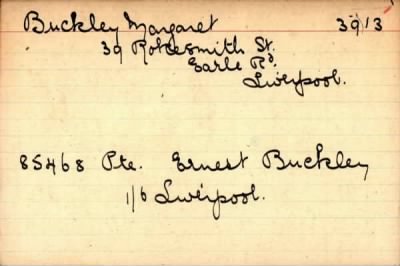 Buckley Margaret 3913
39 Rokesmith St.
Earle Rd.
Liverpool.
85468 Pte. Ernest Buckley
1/6 Liverpool.